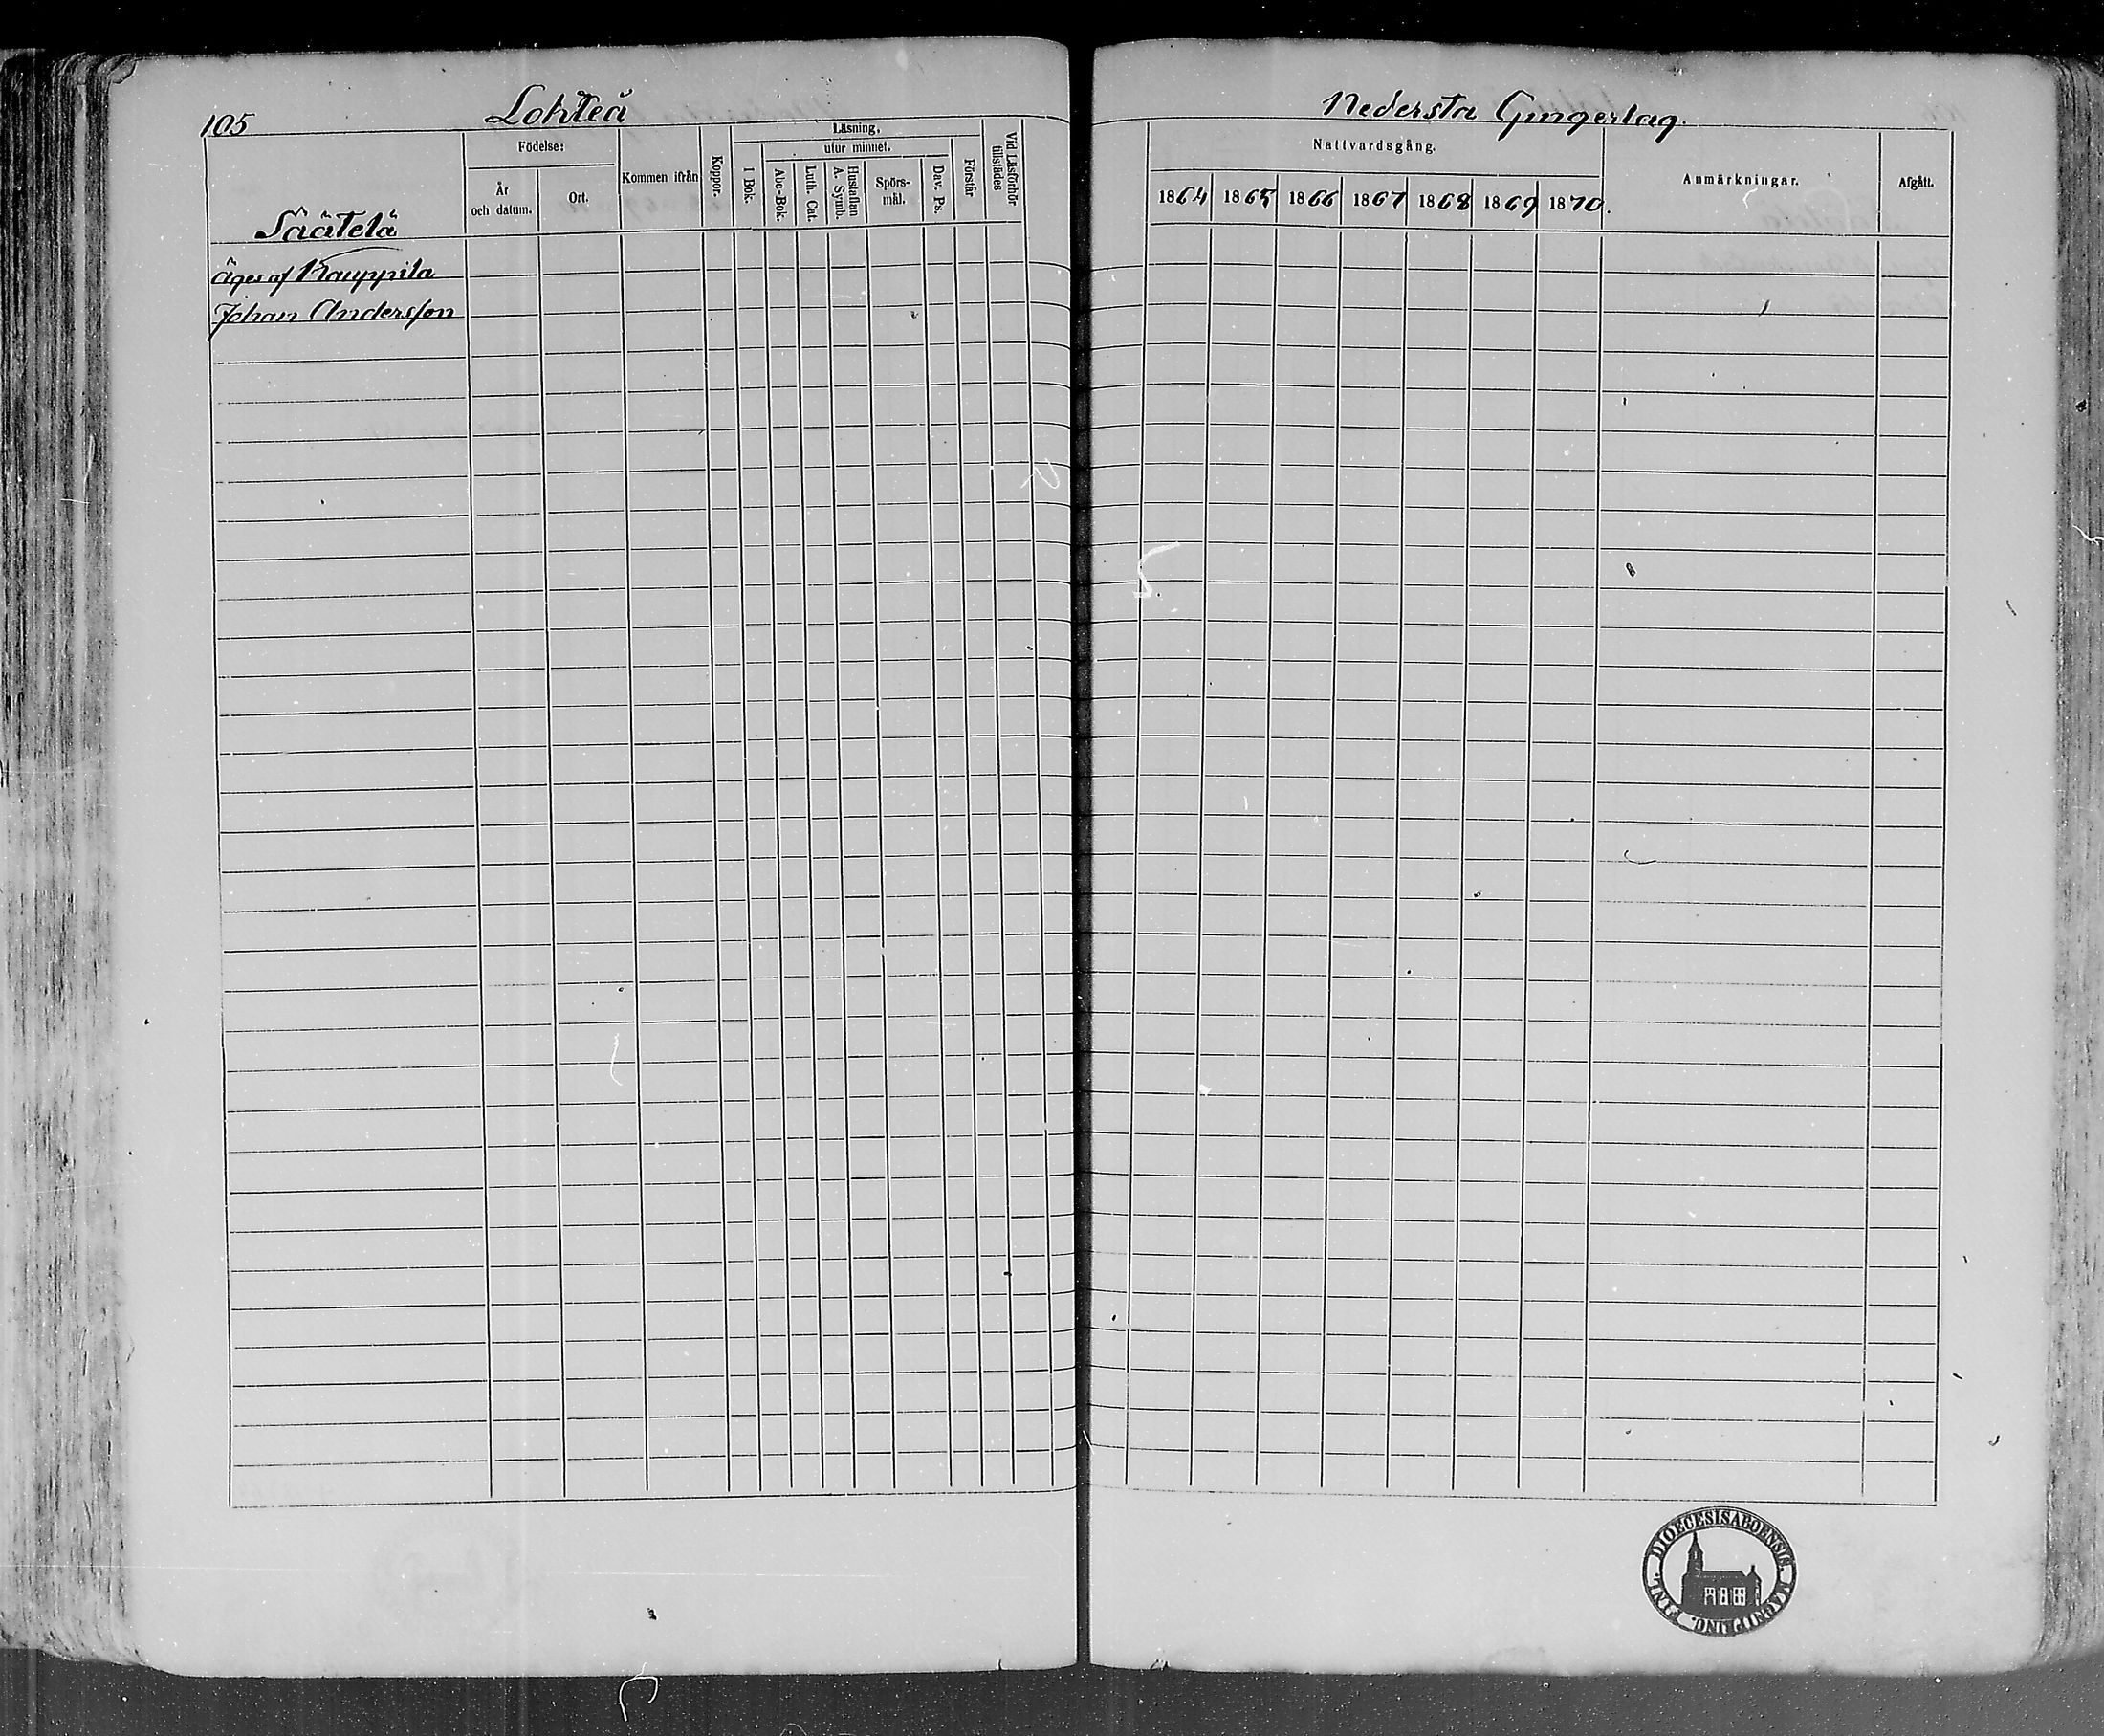 105
Lohteå
Födelse:
År och datum.
Ort.
Kommen ifrån
Koppor.
Läsning,
utur minnet.
I Bok.
Abc-Bok.
Luth. Cat.
Hustaflan A. Symb.
Spörs-mål.
Dav. Ps.
Förstår
Vid Läsförhör tillstådes
Säätelä
Äges af Kauppila
Johan Andersson
Nedersta Gingerlag.
Nattvardsgång.
1864 1865 1866 1867 1868 1869 1870.
Anmärkningar.
Afgått.
DIOECESIS ABOENSIS MAGNI DUC. FINL.